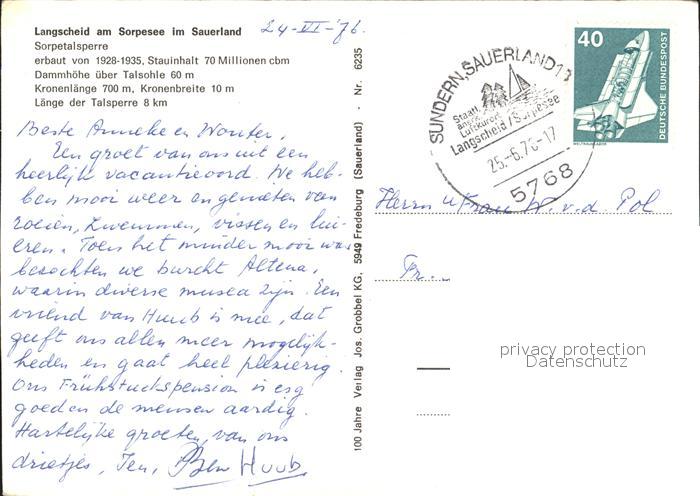 Langscheid am Sorpesee im Sauerland
Sorpetalsperre
erbaut von 1928-1935, Stauinhalt 70 Millionen cbm
Dammhöhe über Talsohle 60 m
Kronenlänge 700 m, Kronenbreite 10 m
Länge der Talsperre 8 km
24-VI-'76.
Beste Anneke en Wouter,
Een groet van ons uit een
heerlijk vacantieoord. We heb-
ben mooi weer en genieten van
roeien, zwemmen, vissen en lui-
eren. Toen het minder mooi was
bezochten we burcht Altena,
waarin diverse musea zijn. Een
vriend van Huub is mee, dat
geeft ons allen meer mogelijk-
heden en gaat heel plezierig.
Ons Frühstückspension is erg
goed en de mensen aardig.
Hartelijke groeten, van ons
drietjes, Ien, Ben Huub.
100 Jahre Verlag Jos. Grobbel KG, 5949 Fredeburg (Sauerland) - Nr. 6235
SUNDERN, SAUERLAND 1
Staatl.
anerk.
Luftkurort
Langscheid/Sorpesee
25.-6.76-17
5768
40
DEUTSCHE BUNDESPOST
WELTRAUMLABOR
Herrn u Frau W. v. d. Pol
Fr...
privacy protection
Datenschutz